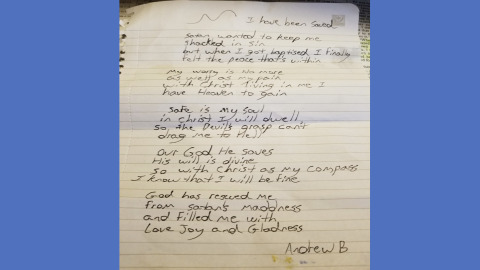 I have been Saved
Satan wanted to keep me
shacked in Sin
but when I got baptised I Finally
felt the peace that's within
My worry is No more
as well as my pain
with Christ living in me I
have Heaven to gain
Safe is My Soul
in christ I will dwell,
so, the Devil's grasp can't
drag me to Hell
Our God, He saves
His will is divine
So with Christ as my Compass
I know that I will be fine
God has rescued me
From satan's Maddness
and Filled me with
Love Joy and Gladness
Andrew B